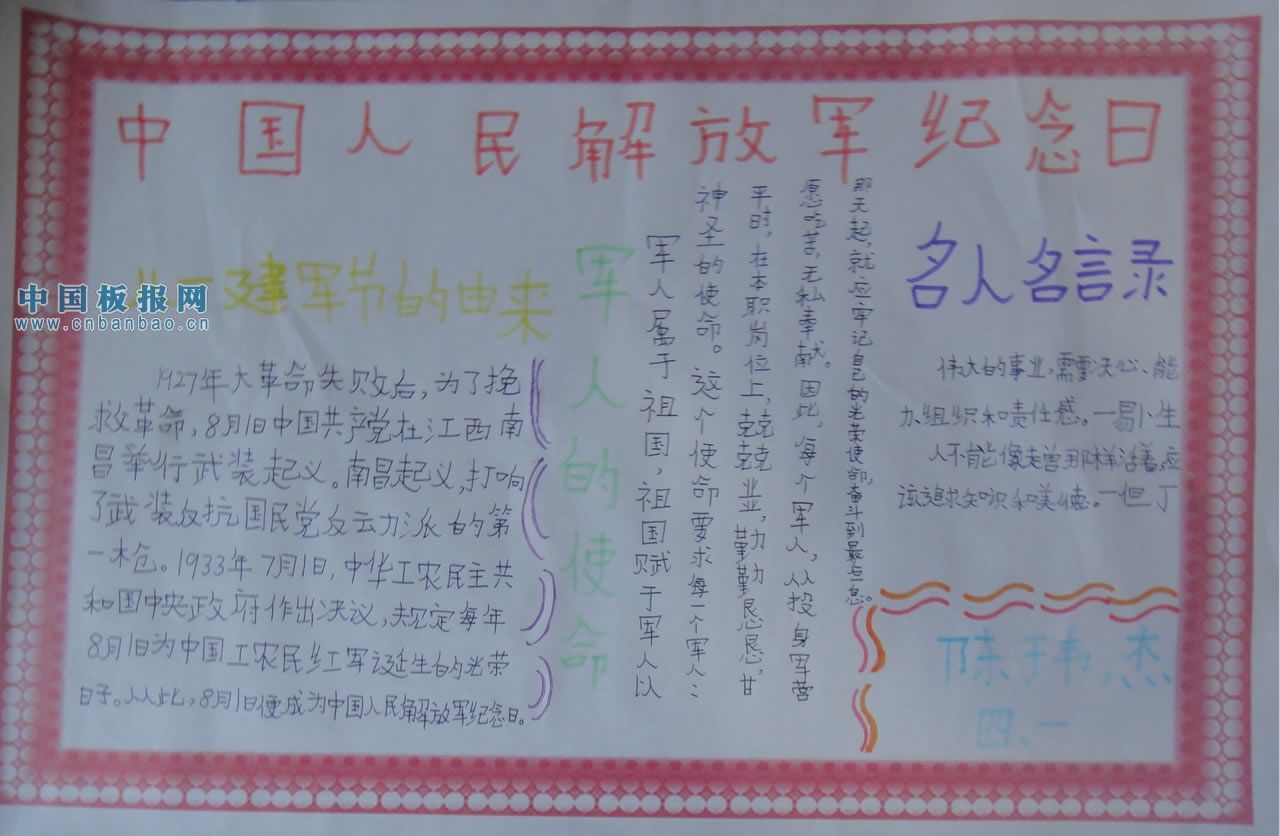 中国人民解放军纪念日
八一建军节的由来
中国板报网
www.cnbanbao.cn
1927年大革命失败后,为了挽
救革命,8月1日中国共产党在江西南
昌举行武装起义。南昌起义,打响
了武装反抗国民党反云力派的第
一木仓。1933年7月1日,中华工农民主共
和国中央政府作出决议,规定每年
8月1日为中国工农民红军诞生的光荣
日子。从此,8月1日便成为中国人民解放军纪念日。
军人的使命
军人属于祖国,祖国赋于军人以
神圣的使命。这个使命要求每一个军人:
平时,在本职岗位上,兢兢业业,勤勤恳恳,甘
愿吃苦,无私奉献。因此,每个军人,从投身军营
那天起,就应牢记自己的光荣使命,奋斗到最后一息。
名人名言录
伟大的事业,需要决心、能
力、组织和责任感。一易卜生
人不能像走兽那样活着,应
该追求知识和美德。一但丁
陈玮杰
四、一